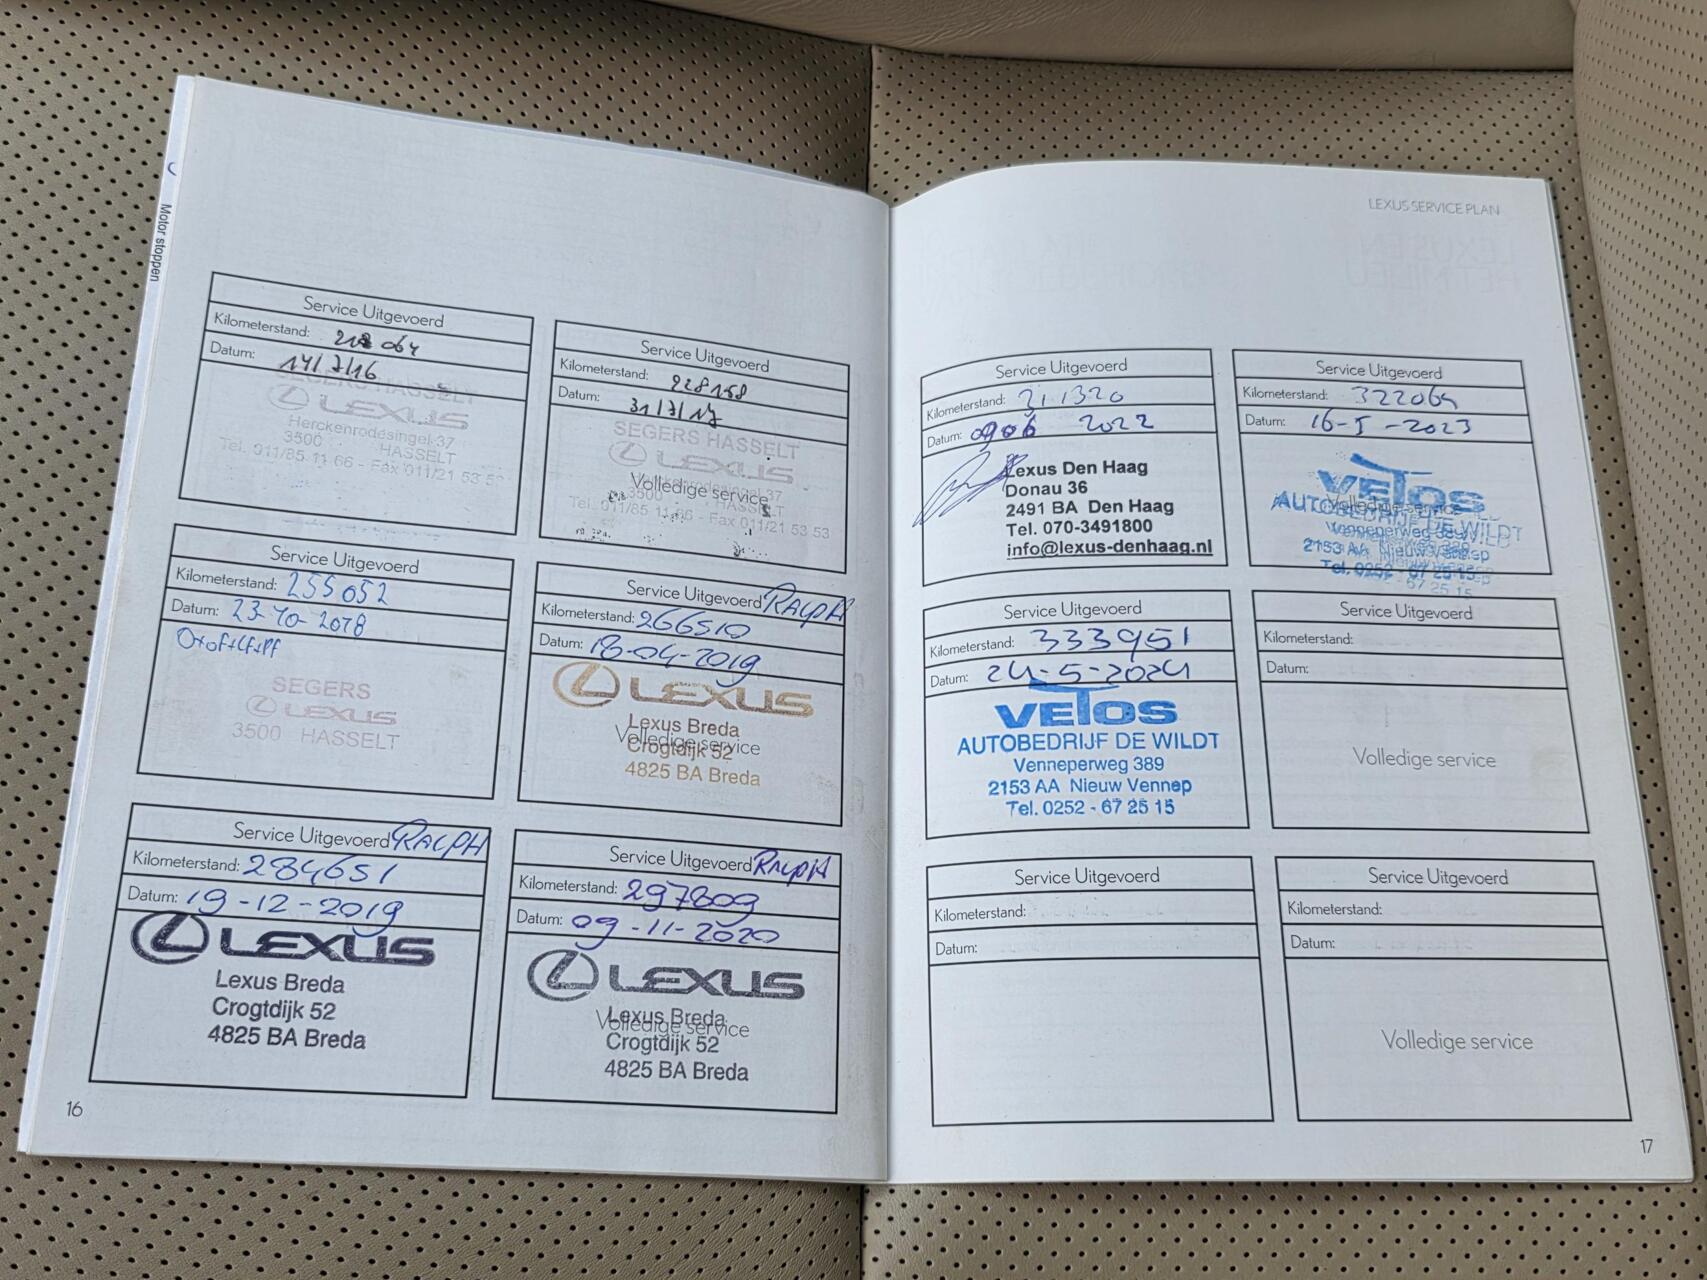 Motor stoppen
Service Uitgevoerd
Kilometerstand: 064
Datum: 14/7/16
SEGERS HASSELT
LEXUS
Herckenrodesingel 37
3500 HASSELT
Tel. 011/85 11 66 - Fax 011/21 53 53
Service Uitgevoerd
Kilometerstand: 228158
Datum: 31/7/17
SEGERS HASSELT
LEXUS
Volledige service
3500 HASSELT
Tel. 011/85 11 66 - Fax 011/21 53 53
Service Uitgevoerd
Kilometerstand: 255052
Datum: 23-10-2018
SEGERS
LEXUS
3500 HASSELT
Service Uitgevoerd RALPH
Kilometerstand: 266510
Datum: 18-04-2019
LEXUS
Lexus Breda
Volledige service
Crogtdijk 52
4825 BA Breda
Service Uitgevoerd RALPH
Kilometerstand: 284651
Datum: 19-12-2019
LEXUS
Lexus Breda
Crogtdijk 52
4825 BA Breda
Service Uitgevoerd RALPH
Kilometerstand: 297809
Datum: 09-11-2020
LEXUS
Lexus Breda
Volledige service
Crogtdijk 52
4825 BA Breda
16
LEXUS SERVICE PLAN
Service Uitgevoerd
Kilometerstand:
Datum: 0906 2022
Lexus Den Haag
Donau 36
2491 BA Den Haag
Tel. 070-3491800
info@lexus-denhaag.nl
Service Uitgevoerd
Kilometerstand: 322064
Datum: 16-5-2023
VETOS
Volledige service
AUTOBEDRIJF DE WILDT
Venneperweg 389
2153 AA Nieuw Vennep
Tel. 0252 - 67 25 15
Service Uitgevoerd
Kilometerstand: 333951
Datum: 24-5-2024
VETOS
AUTOBEDRIJF DE WILDT
Venneperweg 389
2153 AA Nieuw Vennep
Tel. 0252 - 67 25 15
Service Uitgevoerd
Kilometerstand:
Datum:
Volledige service
Service Uitgevoerd
Kilometerstand:
Datum:
Service Uitgevoerd
Kilometerstand:
Datum:
Volledige service
17